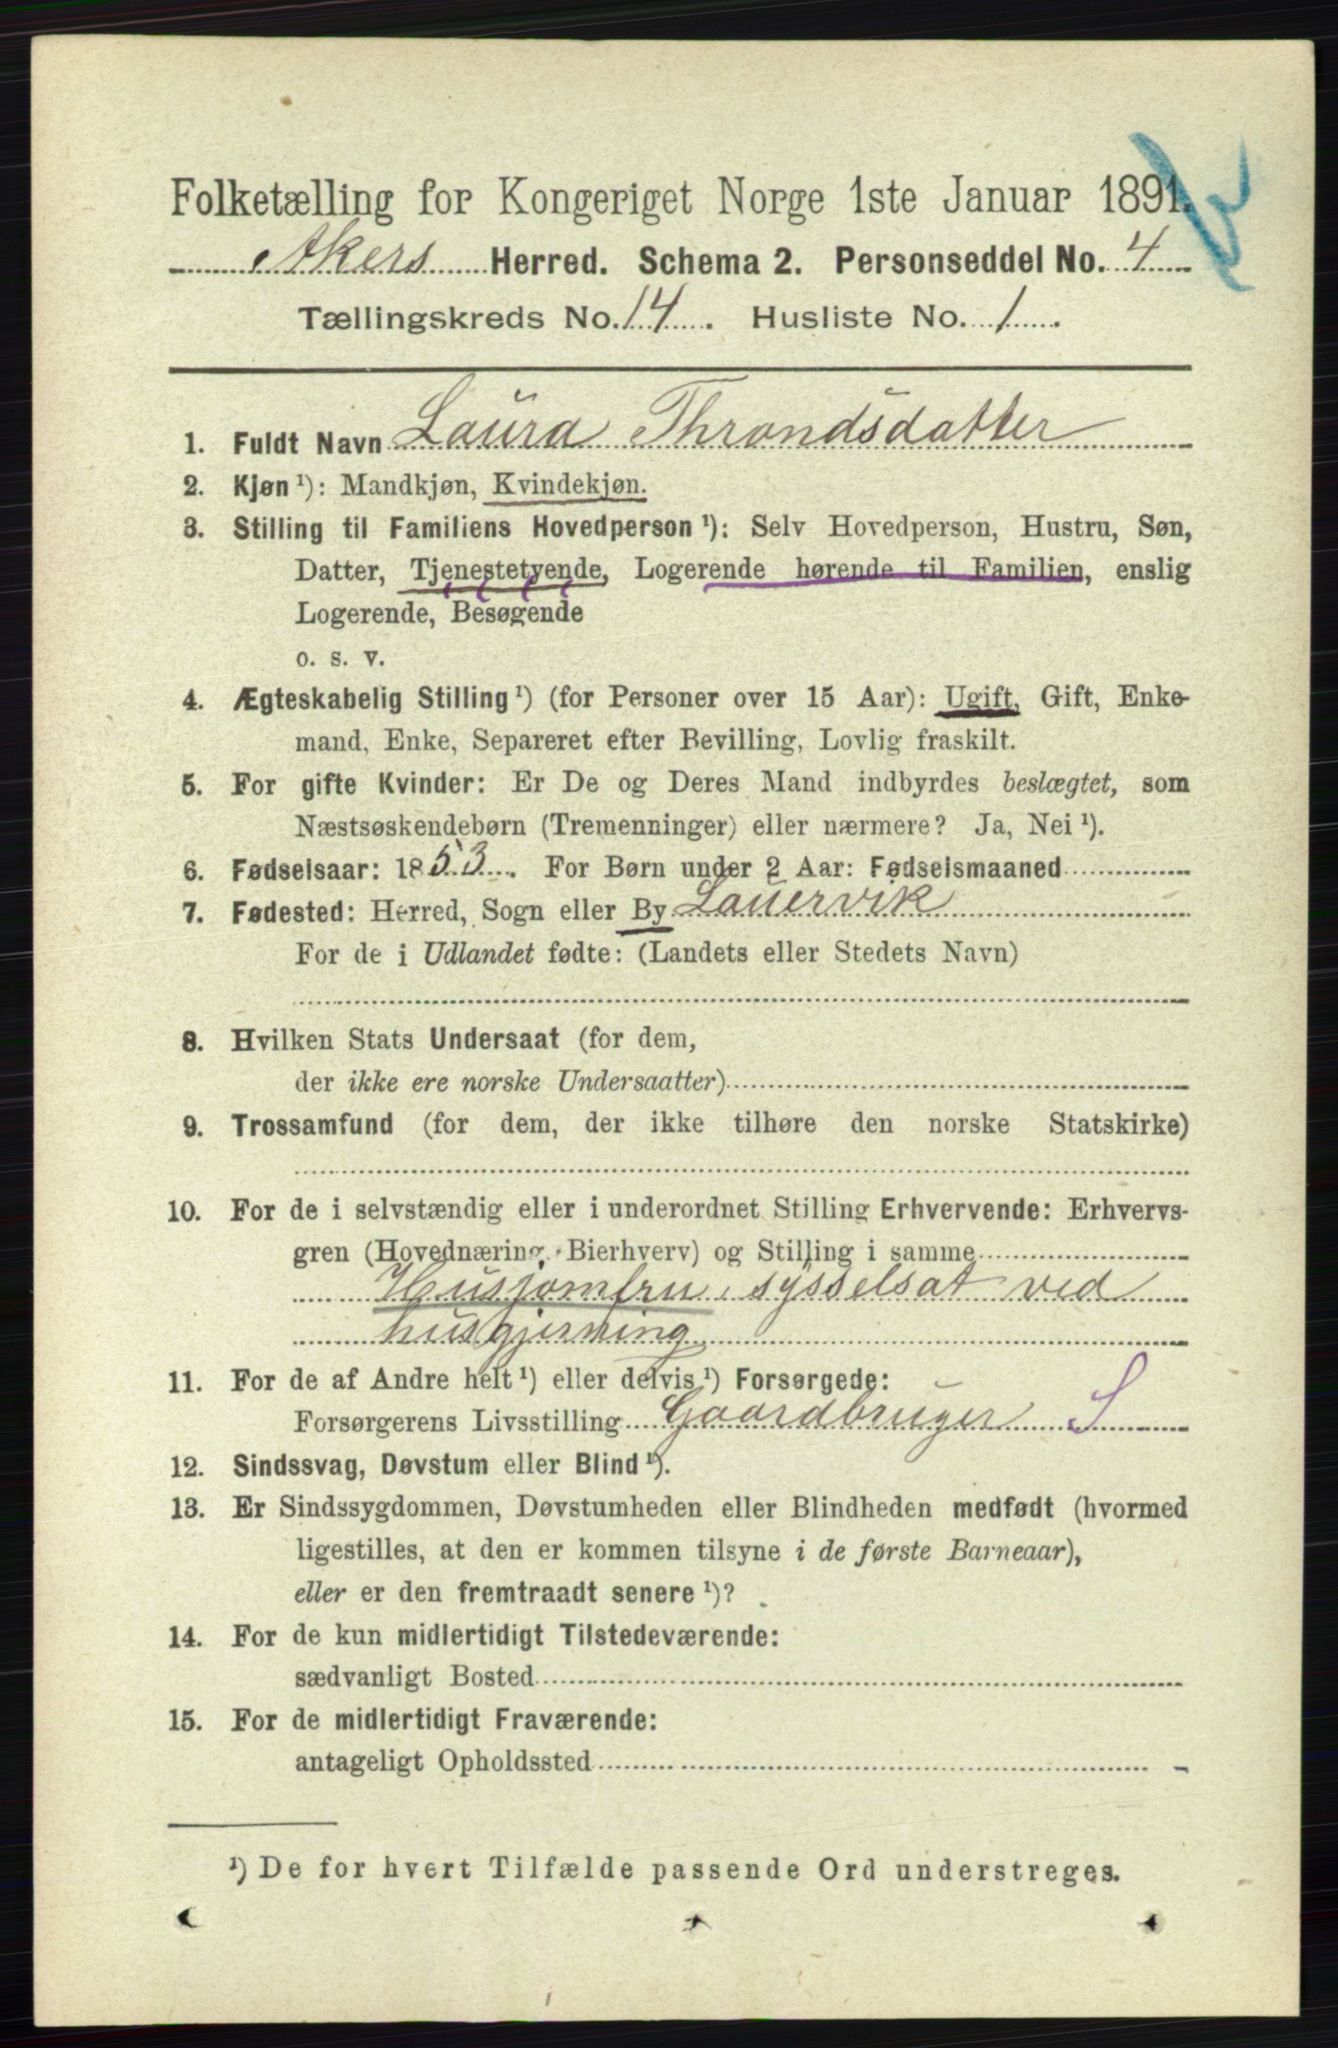 Folketælling for Kongeriget Norge 1ste Januar 1891.
Akers Herred. Schema 2. Personseddel No. 4
Tællingskreds No. 14. Husliste No. 1.
1. Fuldt Navn Laura Throndsdatter
2. Kjøn ¹): Mandkjøn, Kvindekjøn.
3. Stilling til Familiens Hovedperson ¹): Selv Hovedperson, Hustru, Søn,
Datter, Tjenestetyende, Logerende hørende til Familien, enslig
Logerende, Besøgende
o. s. v.
4. Ægteskabelig Stilling ¹) (for Personer over 15 Aar): Ugift, Gift, Enke-
mand, Enke, Separeret efter Bevilling, Lovlig fraskilt.
5. For gifte Kvinder: Er De og Deres Mand indbyrdes beslægtet, som
Næstsøskendebørn (Tremenninger) eller nærmere? Ja, Nei ¹).
6. Fødselsaar: 1853. For Børn under 2 Aar: Fødselsmaaned
7. Fødested: Herred, Sogn eller By Lauervik
For de i Udlandet fødte: (Landets eller Stedets Navn)
8. Hvilken Stats Undersaat (for dem,
der ikke ere norske Undersaatter)
9. Trossamfund (for dem, der ikke tilhøre den norske Statskirke)
10. For de i selvstændig eller i underordnet Stilling Erhvervende: Erhvervs-
gren (Hovednæring, Bierhverv) og Stilling i samme
Husjomfru, sysselsat ved
husgjerning
11. For de af Andre helt ¹) eller delvis ¹) Forsørgede:
Forsørgerens Livsstilling Gaardbruger S
12. Sindssvag, Døvstum eller Blind ¹).
13. Er Sindssygdommen, Døvstumheden eller Blindheden medfødt (hvormed
ligestilles, at den er kommen tilsyne i de første Barneaar),
eller er den fremtraadt senere ¹)?
14. For de kun midlertidigt Tilstedeværende:
sædvanligt Bosted
15. For de midlertidigt Fraværende:
antageligt Opholdssted
¹) De for hvert Tilfælde passende Ord understreges.